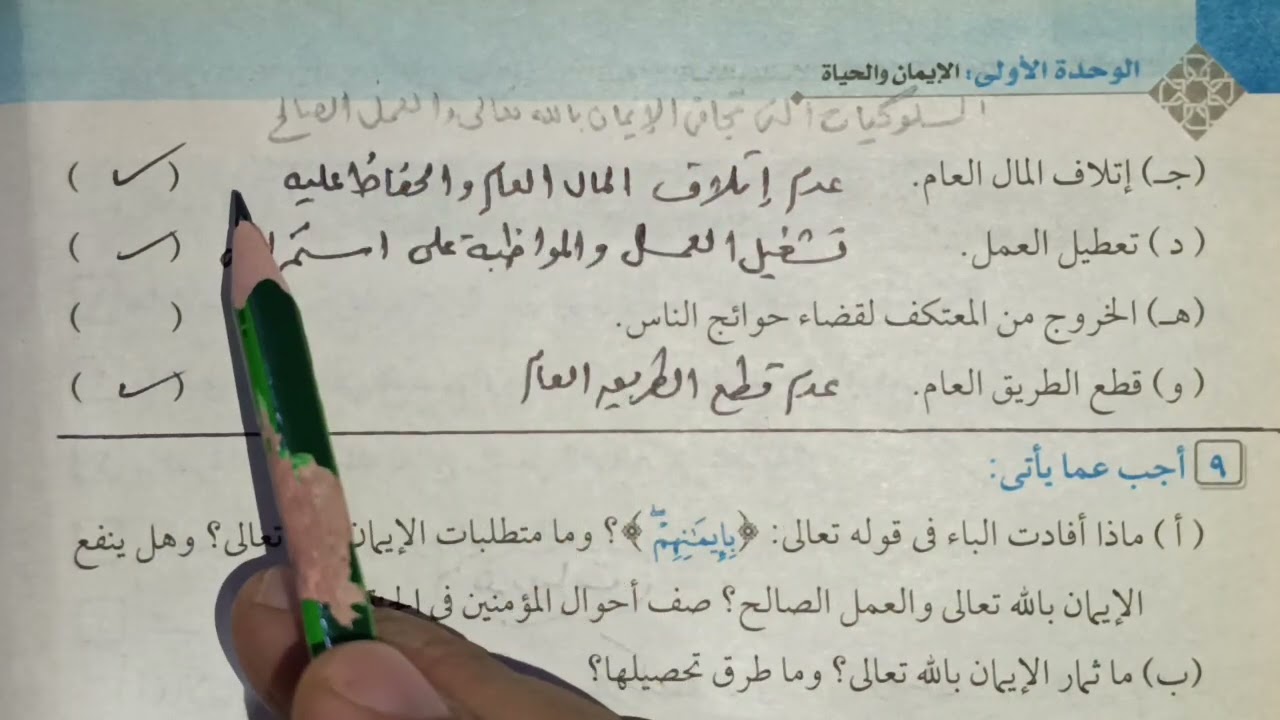 الوحدة الأولى: الإيمان والحياة
السلوكيات التى تجافى الإيمان بالله تعالى والعمل الصالح
(جـ) إتلاف المال العام. عدم إتلاف المال العام والحفاظ عليه ( ✓ )
(د) تعطيل العمل. تشغيل العمل والمواظبة على ( ✓ )
(هـ) الخروج من المعتكف لقضاء حوائج الناس. ( )
(و) قطع الطريق العام. عدم قطع الطريق العام ( ✓ )
٩ أجب عما يأتى:
(أ) ماذا أفادت الباء فى قوله تعالى: ﴿بِإِيمَٰنِهِمْ﴾؟ وما متطلبات تعالى؟ وهل ينفع
الإيمان بالله تعالى والعمل الصالح؟ صف أحوال المؤمنين فى
(ب) ما ثمار الإيمان بالله تعالى؟ وما طرق تحصيلها؟